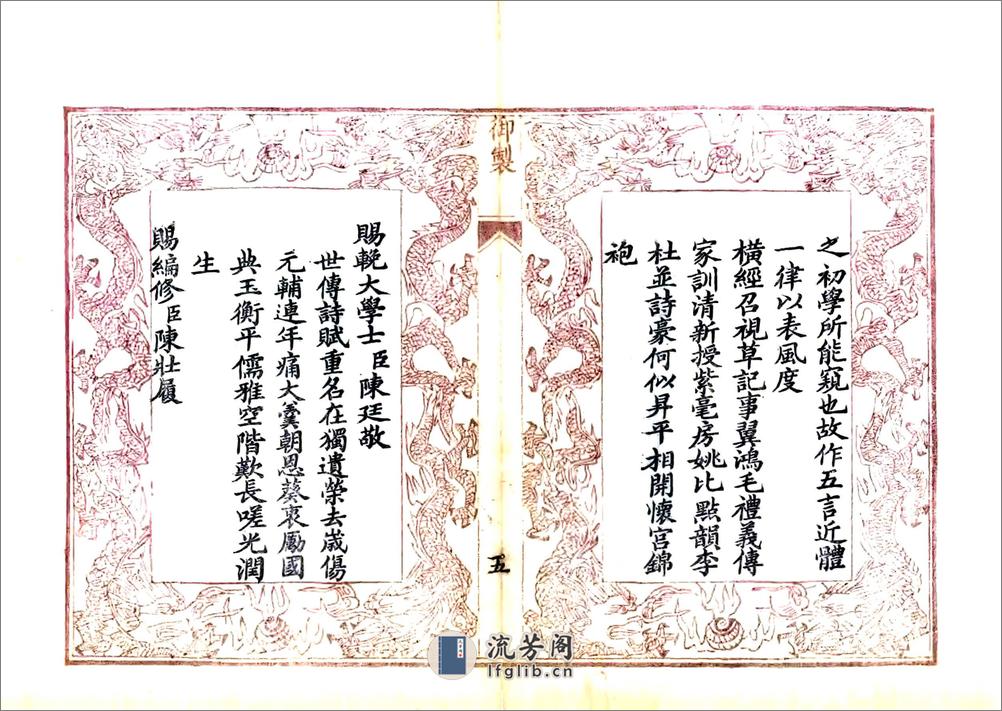 之初學所能窺也故作五言近體
一律以表風度
橫經召視草記事翼鴻毛禮義傳
家訓清新授紫毫房姚比點韻李
杜並詩豪何似昇平相開懷宮錦
袍
御製
五
賜輓大學士臣陳廷敬
世傳詩賦重名在獨遺榮去歲傷
元輔連年痛大羹朝恩葵衷勵國
典玉衡平儒雅空階歎長嗟光潤
生
賜編修臣陳壯履
流芳阁
lfglib.cn